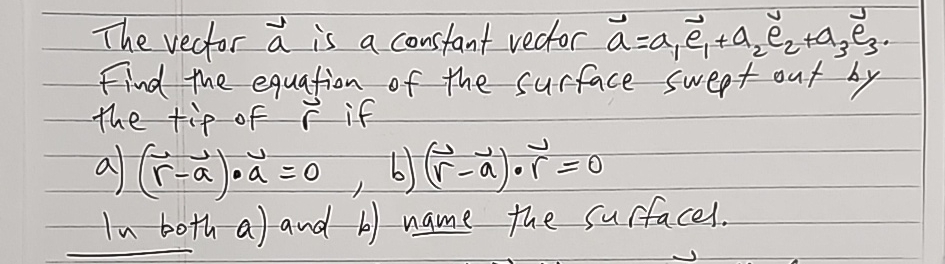 The vector a⃗ is a constant vector a⃗=a₁e⃗₁+a₂e⃗₂+a₃e⃗₃.
Find the equation of the surface swept out by
the tip of r⃗ if
a) (r⃗-a⃗)•a⃗=0 , b) (r⃗-a⃗)•r⃗=0
In both a) and b) name the surfaces.